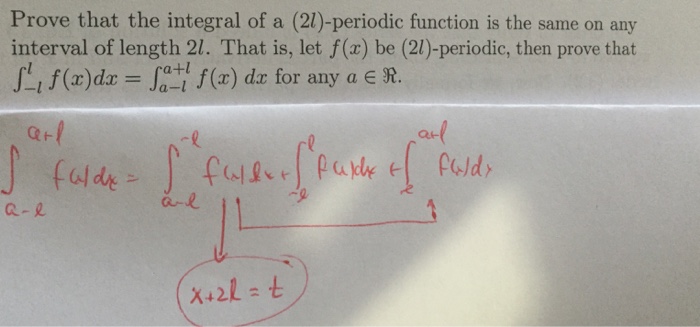 Prove that the integral of a (2l)-periodic function is the same on any
interval of length 2l. That is, let f(x) be (2l)-periodic, then prove that
∫_{-l}^{l} f(x)dx = ∫_{a-l}^{a+l} f(x) dx for any a ∈ ℜ.
∫_{a-l}^{a+l} f(x)dx = ∫_{a-l}^{-l} f(x)dx + ∫_{-l}^{l} f(x)dx + ∫_{l}^{a+l} f(x)dx
x+2l = t